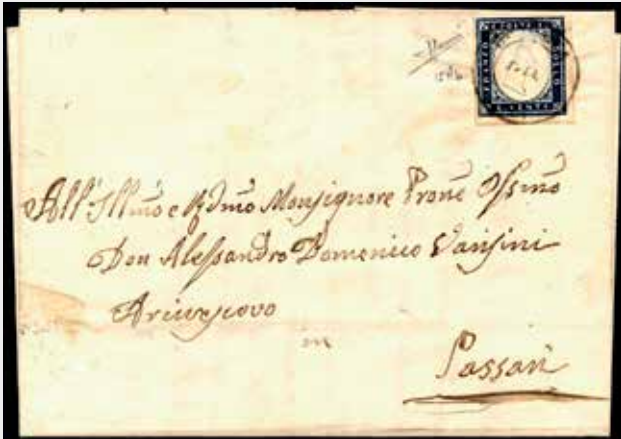 FRANCO BOLLO
CENT
All' Illmo e Rdmo Monsignore Prone Ossmo
Don Alessandro Domenico Varesini
Arcivescovo
in
Sassari